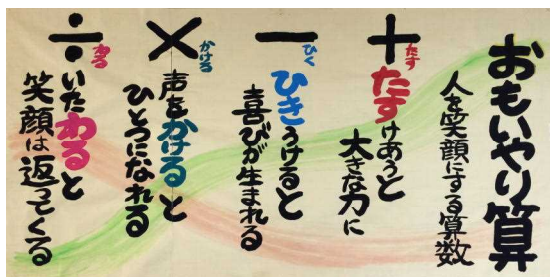 おもいやり算
人を笑顔にする算数
＋
たす
たすけあうと
大きな力に
－
ひく
ひきうけると
喜びが生まれる
×
かける
声をかけると
ひとつになれる
÷
わる
いたわると
笑顔は返ってくる